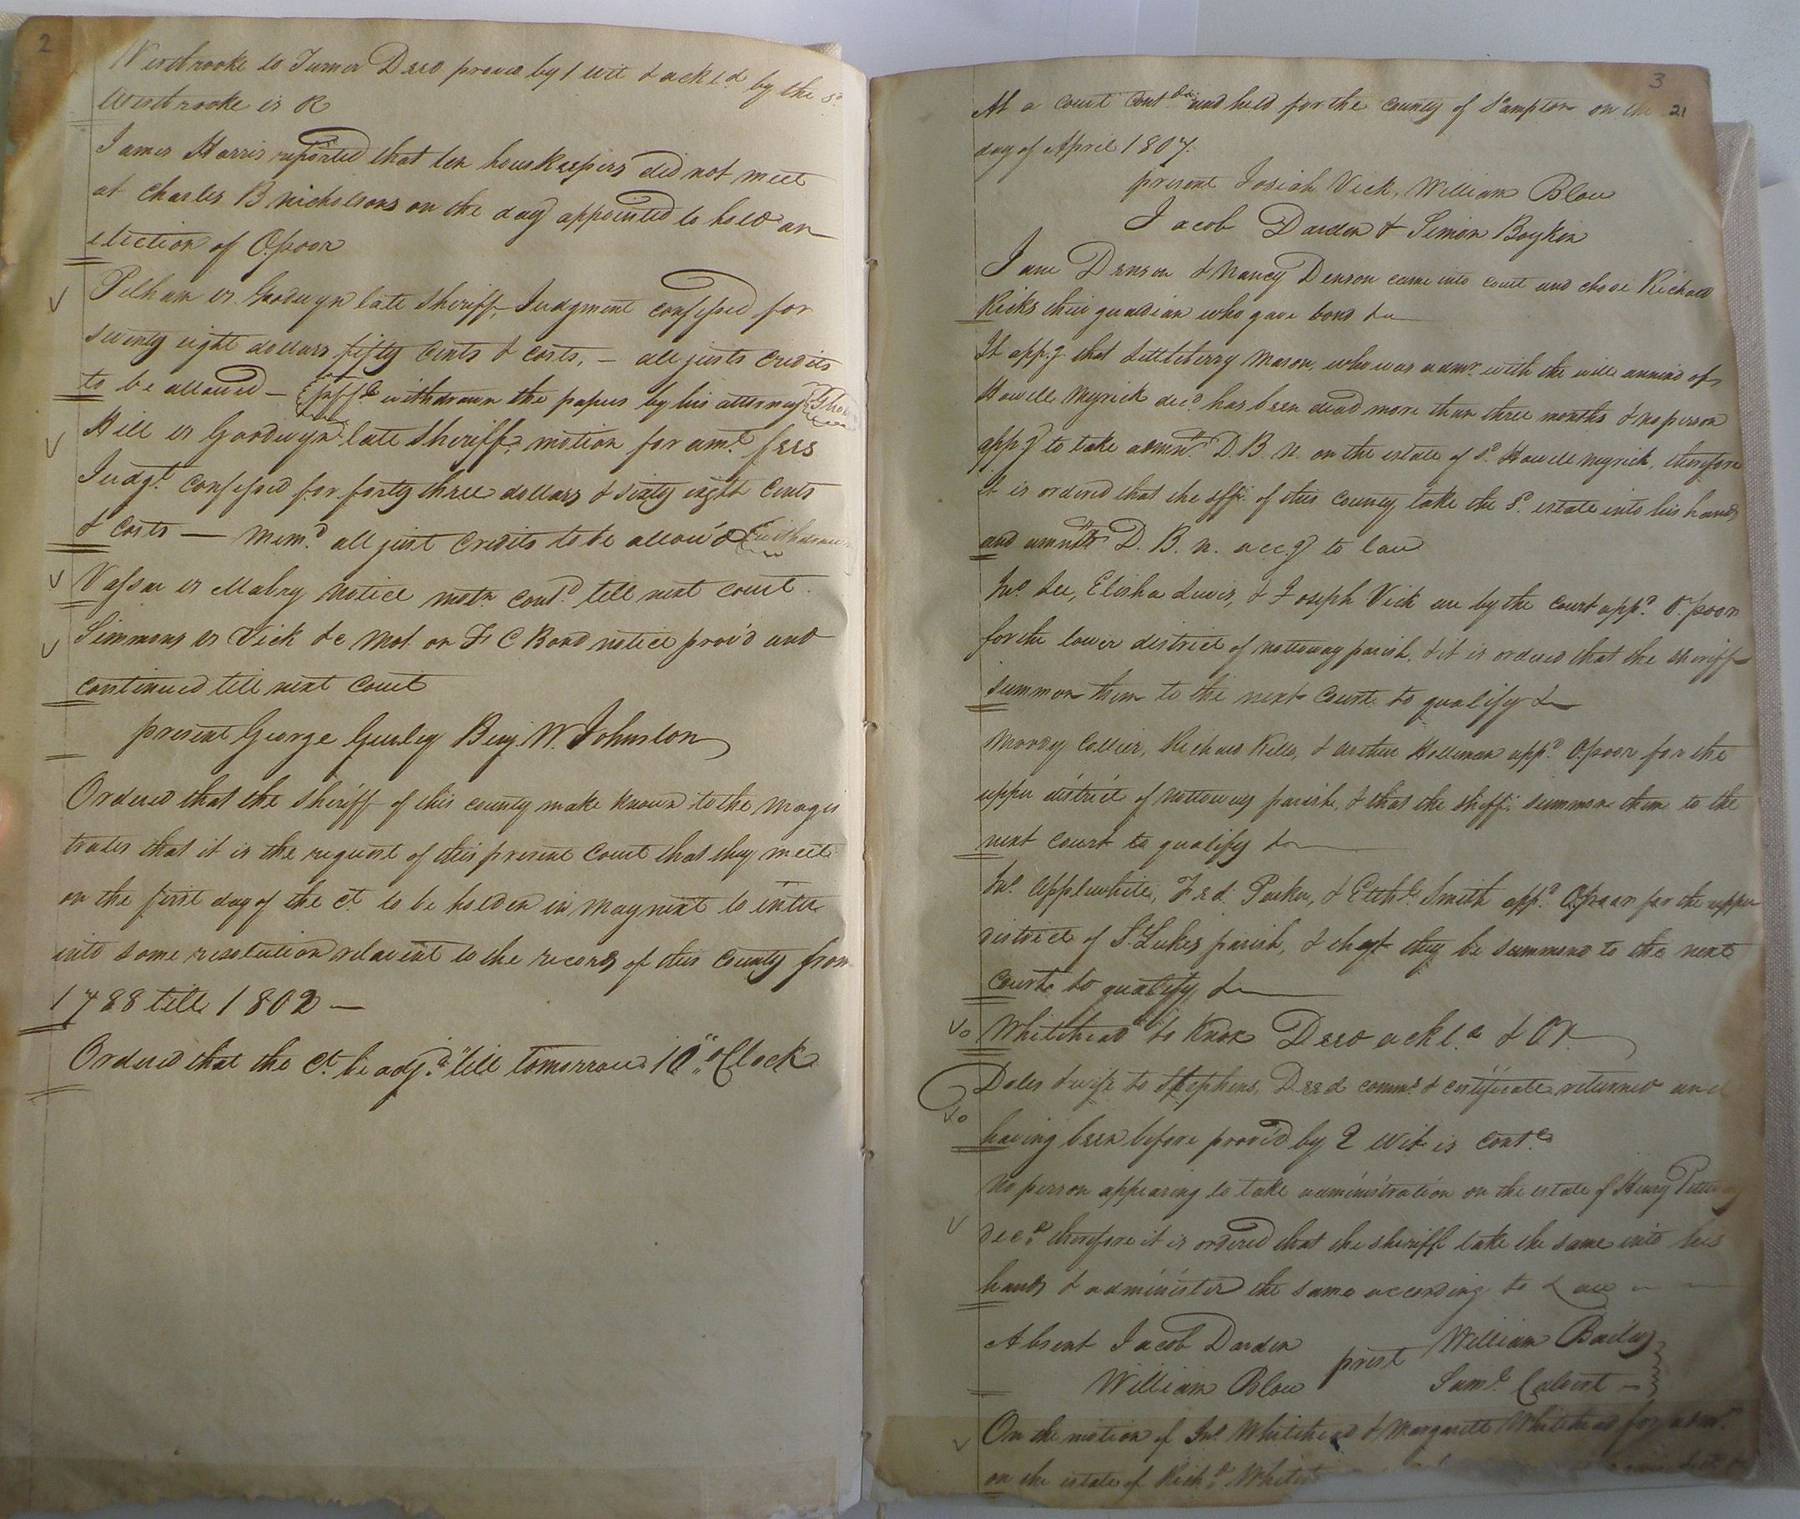 2
Westbrooke to Turner Deed proved by 1 wit & ackl.d by the s.d
Westbrooke is R
James Harris reported that ten housekeepers did not meet
at Charles B Nicholsons on the day appointed to hold an
election of O,poor
Pelham vs Goodwyn late Sheriff, Judgment confessed for
twenty eight dollars fifty cents & costs, — all justs credits
to be allowed — withdrawn the papers by his attorney
Hill vs Goodwyn late Sheriff, motion for am.t fees
Judg.t confessed for forty three dollars & sixty eight cents
& costs — Mem.d all just credits to be allow'd withdrawn
Vassar vs Mabry notice motn cont.d till next court
Simmons vs Vick &c Mot. on F C Bond notice prov'd and
continued till next court
present George Gurley Benj. W. Johnston
Ordered that the Sheriff of this county make known to the Magis
trates that it is the request of this present Court that they meet
on the first day of the Ct. to be holden in May next to enter
into some resolution relavent to the records of this County from
1788 till 1802 —
Ordered that the Ct. be adj.d till tomorrow 10 "oClock
3
At a court Cont.d and held for the county of S'ampton on the 21
day of April 1807.
present Josiah Vick, William Blow
Jacob Darden & Simon Boykin
Jane Denson & Nancy Denson came into court and chose Richard
Ricks their guardian who gave bond &c
It app.g that Littleberry Mason, who was adm.r with the will annexed of
Howell Myrick dec.d has been dead more than three months & no person
app.g to take admn. D. B. N. on the estate of s.d Howell Myrick, therefore
it is ordered that the sff. of this county take the s.d estate into his hands
and D. B. N. acc.g to law
Jn.o Lee, Elisha Lewis, & Joseph Vick are by the court app.d O.poor
for the lower district of nottoway parish, & it is ordered that the sheriff
summon them to the next Court to qualify &c
Moody Collier, Richard Kello, & Arthur Holleman app.d O,poor for the
upper district of nottoway parish, & that the sheff. summon them to the
next court to qualify &c
Jn.o Applewhite, Fred. Parker, & Smith app.d O,poor for the upper
district of S.t Lukes parish, & that they be summond to the next
Court to qualify &c
Whitehead to Knox Deed ackl.d & OR
Doles & wife to Stephens, Deed comm.s & certificate returned and
having been before prov'd by 2 wits is cont.d
No person appearing to take administration on the estate of Henry
dec.d therefore it is ordered that the sheriff take the same into his
hands & administer the same according to Law
Absent Jacob Darden prest William Bailey
William Blow Sam.l Calvert —
On the motion of Jn.o Whitehead & Margarett Whitehead for adm.n
on the estate of Rich.d